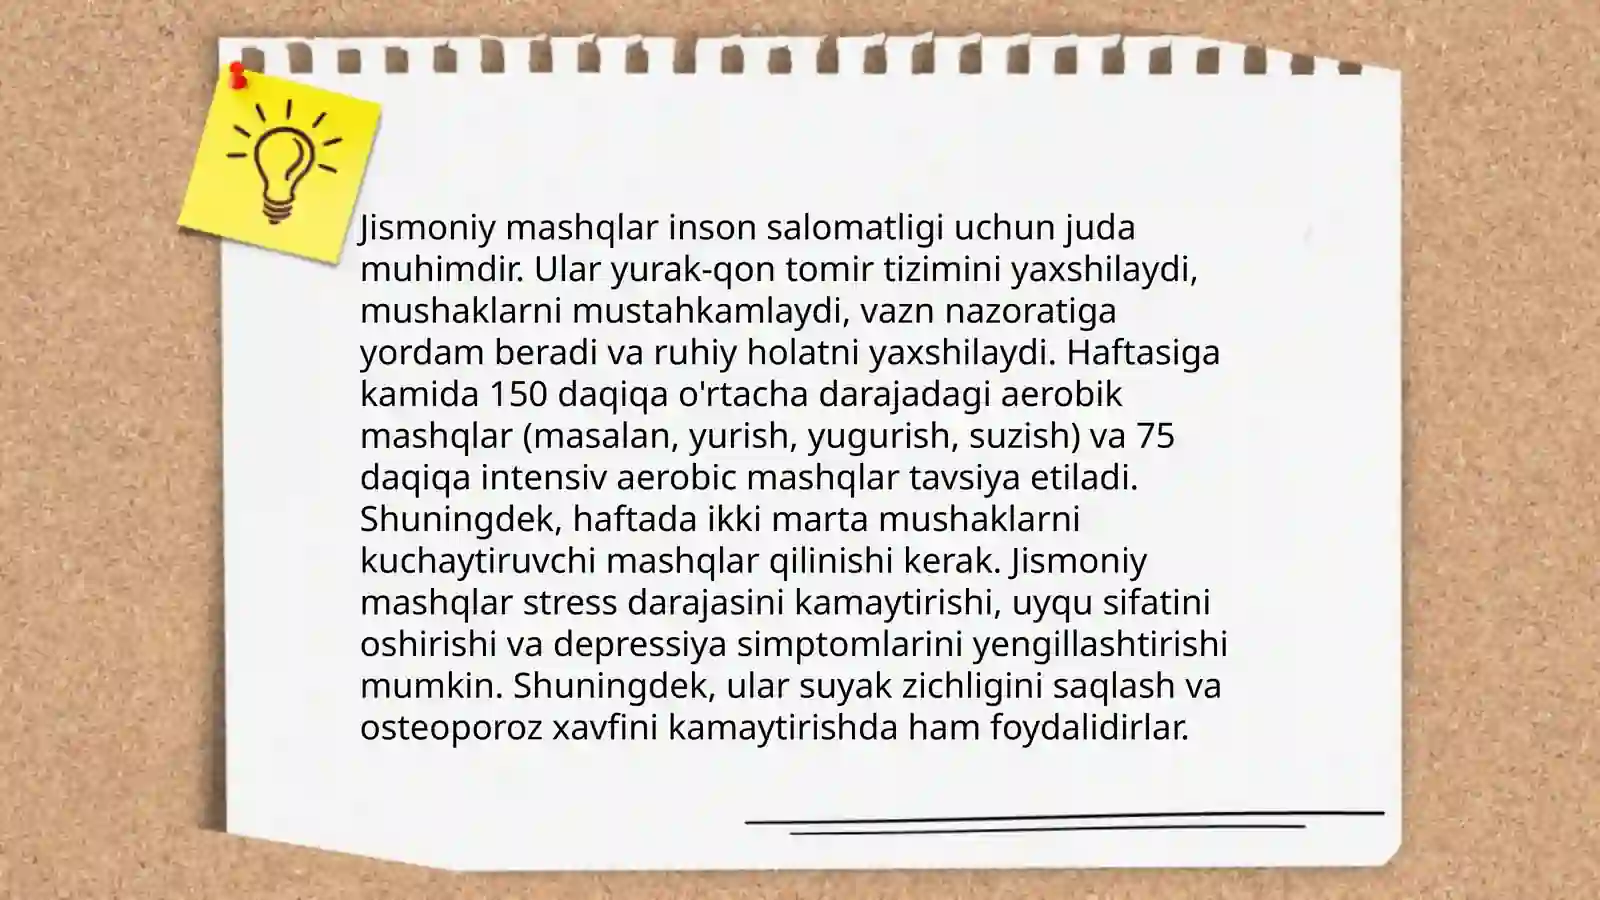 Jismoniy mashqlar inson salomatligi uchun juda
muhimdir. Ular yurak-qon tomir tizimini yaxshilaydi,
mushaklarni mustahkamlaydi, vazn nazoratiga
yordam beradi va ruhiy holatni yaxshilaydi. Haftasiga
kamida 150 daqiqa o'rtacha darajadagi aerobik
mashqlar (masalan, yurish, yugurish, suzish) va 75
daqiqa intensiv aerobic mashqlar tavsiya etiladi.
Shuningdek, haftada ikki marta mushaklarni
kuchaytiruvchi mashqlar qilinishi kerak. Jismoniy
mashqlar stress darajasini kamaytirishi, uyqu sifatini
oshirishi va depressiya simptomlarini yengillashtirishi
mumkin. Shuningdek, ular suyak zichligini saqlash va
osteoporoz xavfini kamaytirishda ham foydalidirlar.